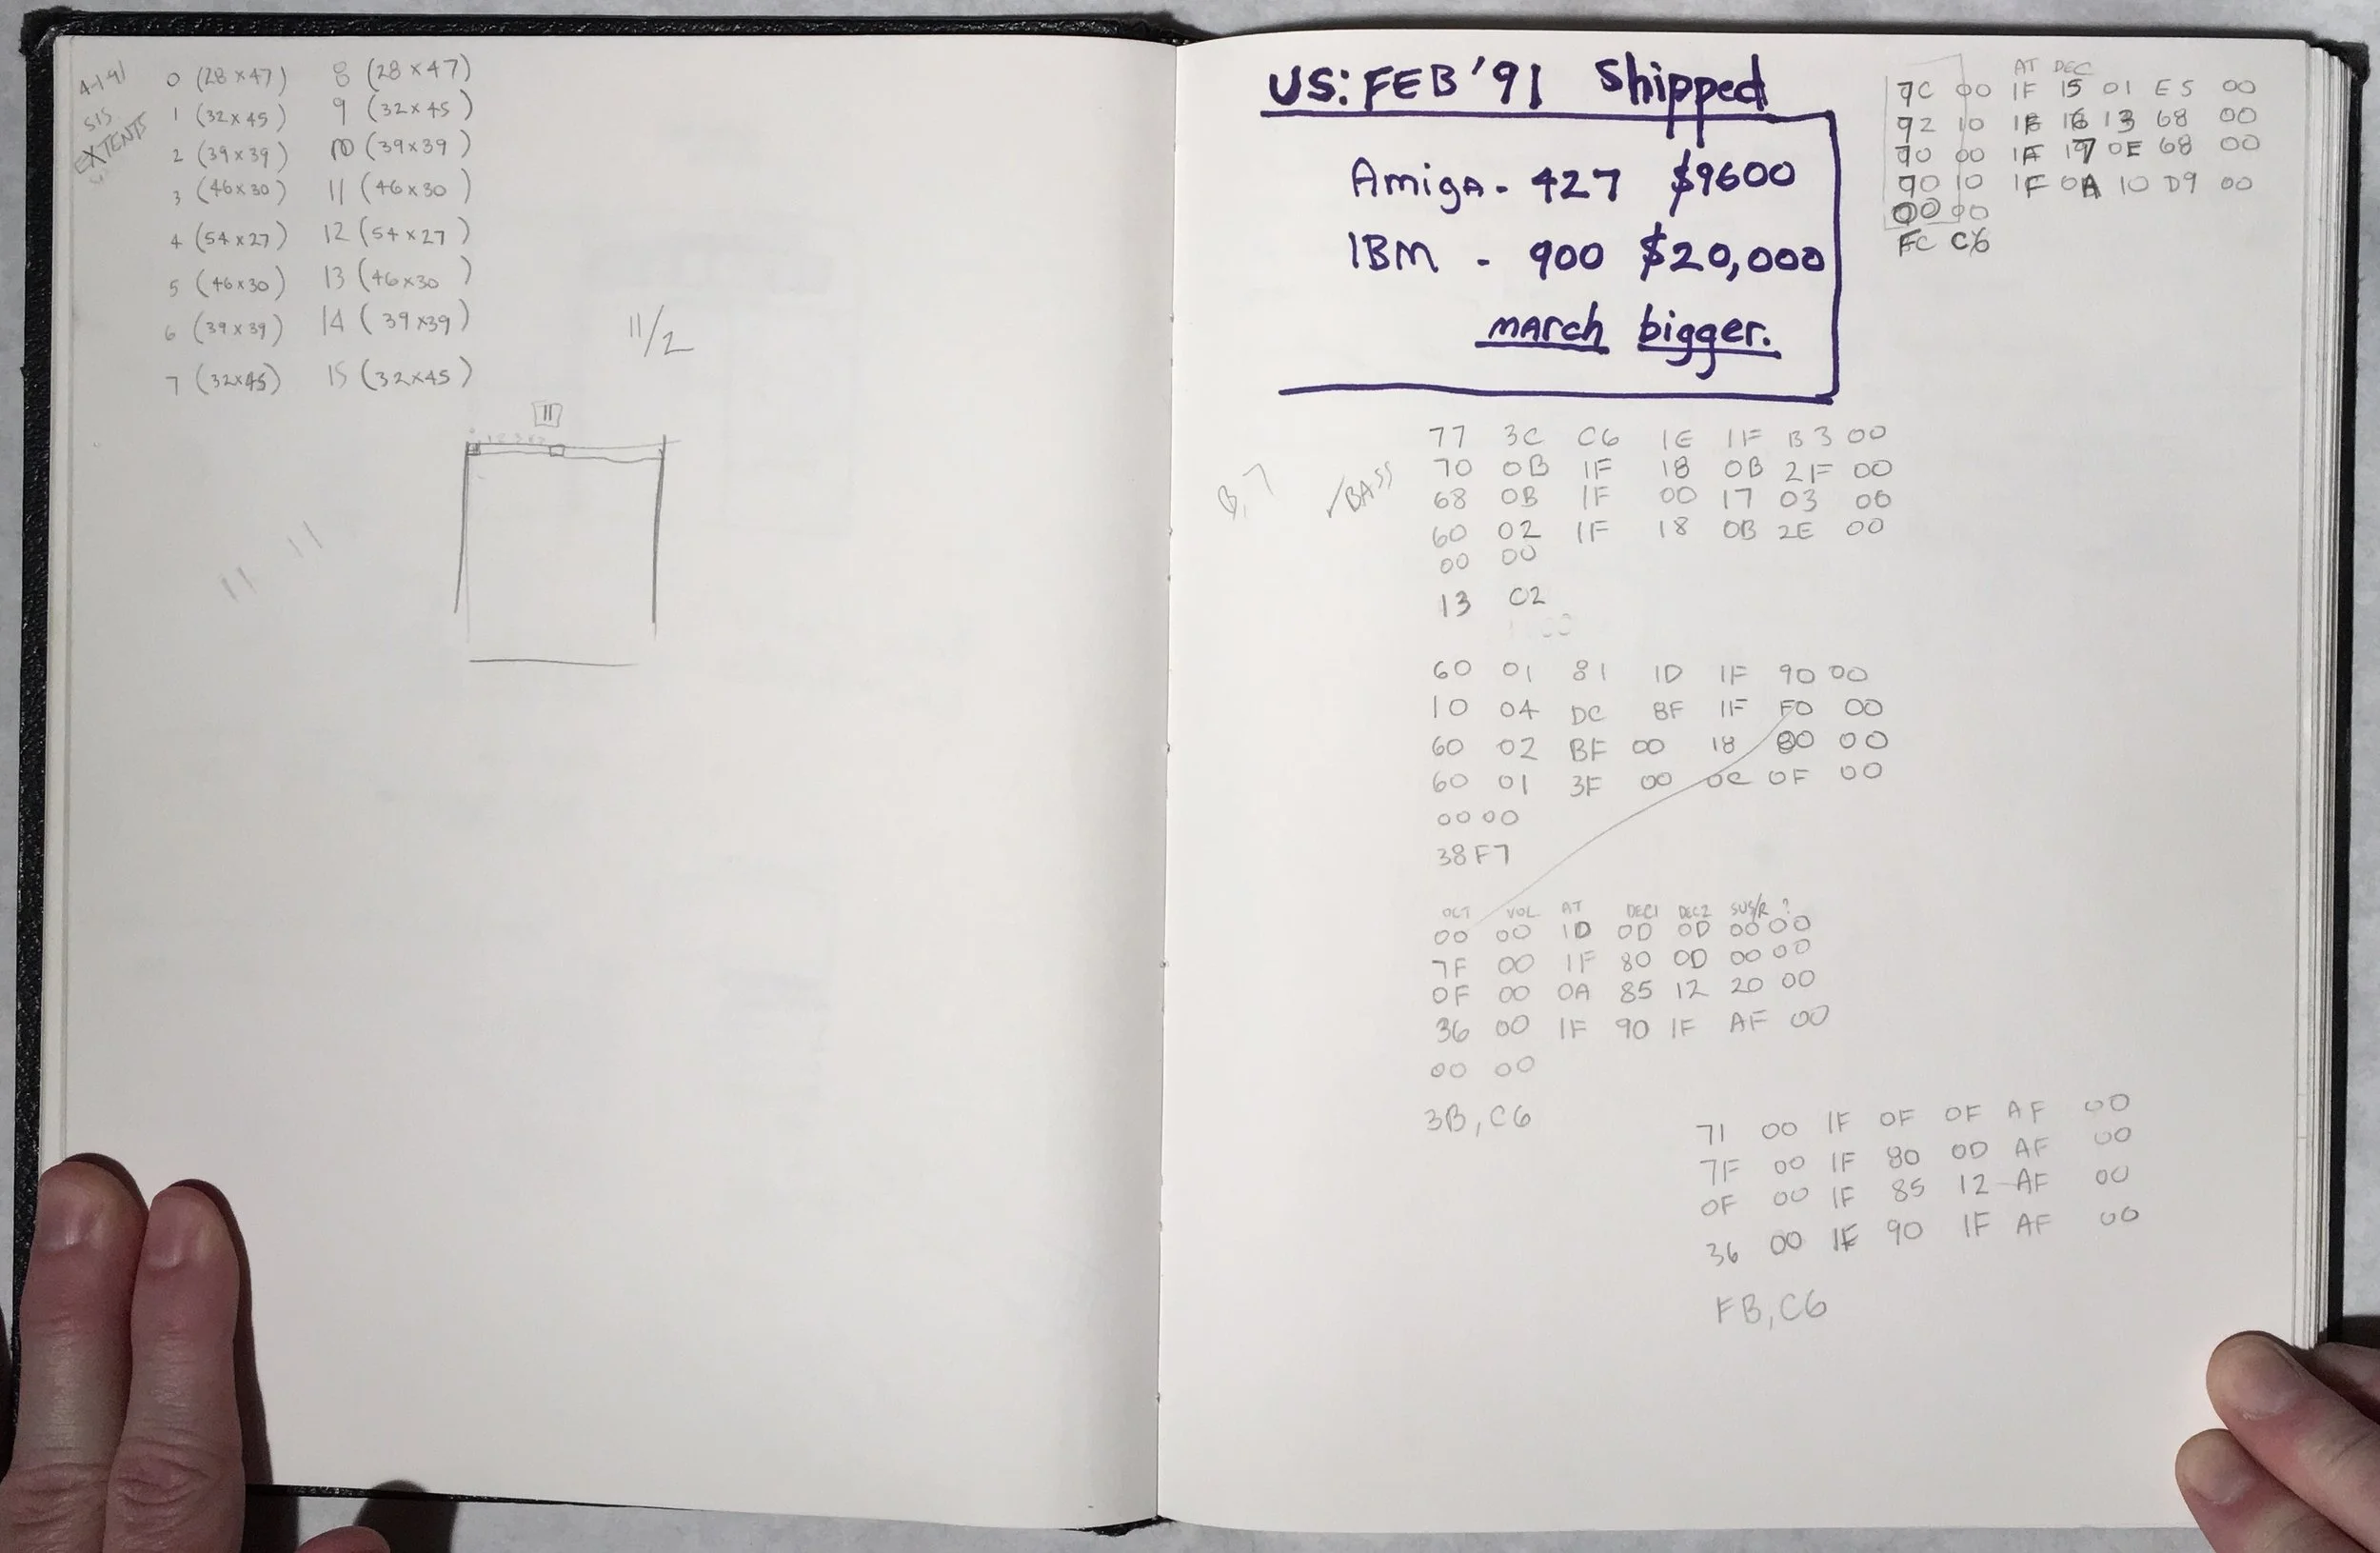 4-1-91
SIS
EXTENTS
0 (28×47) 8 (28×47)
1 (32×45) 9 (32×45)
2 (39×39) 10 (39×39)
3 (46×30) 11 (46×30)
4 (54×27) 12 (54×27)
5 (46×30) 13 (46×30)
6 (39×39) 14 (39×39)
7 (32×45) 15 (32×45)
11/2
11
11 11
US: FEB '91 Shipped
Amiga - 427 $9600
IBM - 900 $20,000
march bigger.
AT DEC
7C 00 1F 15 01 E5 00
92 10 1F 16 13 68 00
70 00 1F 17 0E 68 00
70 10 1F 0A 10 D9 00
00 00
FC C6
✓BASS
77 3C C6 1E 1F B3 00
70 0B 1F 18 0B 2F 00
68 0B 1F 00 17 03 00
60 02 1F 18 0B 2E 00
00 00
13 C2
60 01 81 1D 1F 90 00
10 04 DC 8F 1F F0 00
60 02 BF 00 18 80 00
60 01 3F 00 0C 0F 00
00 00
38 F7
OCT VOL AT DEC1 DEC2 SUS/R ?
00 00 1D 0D 0D 00 00
7F 00 1F 80 0D 00 00
0F 00 0A 85 12 20 00
36 00 1F 90 1F AF 00
00 00
3B, C6
71 00 1F 0F 0F AF 00
7F 00 1F 80 0D AF 00
0F 00 1F 85 12 AF 00
36 00 1F 90 1F AF 00
FB, C6